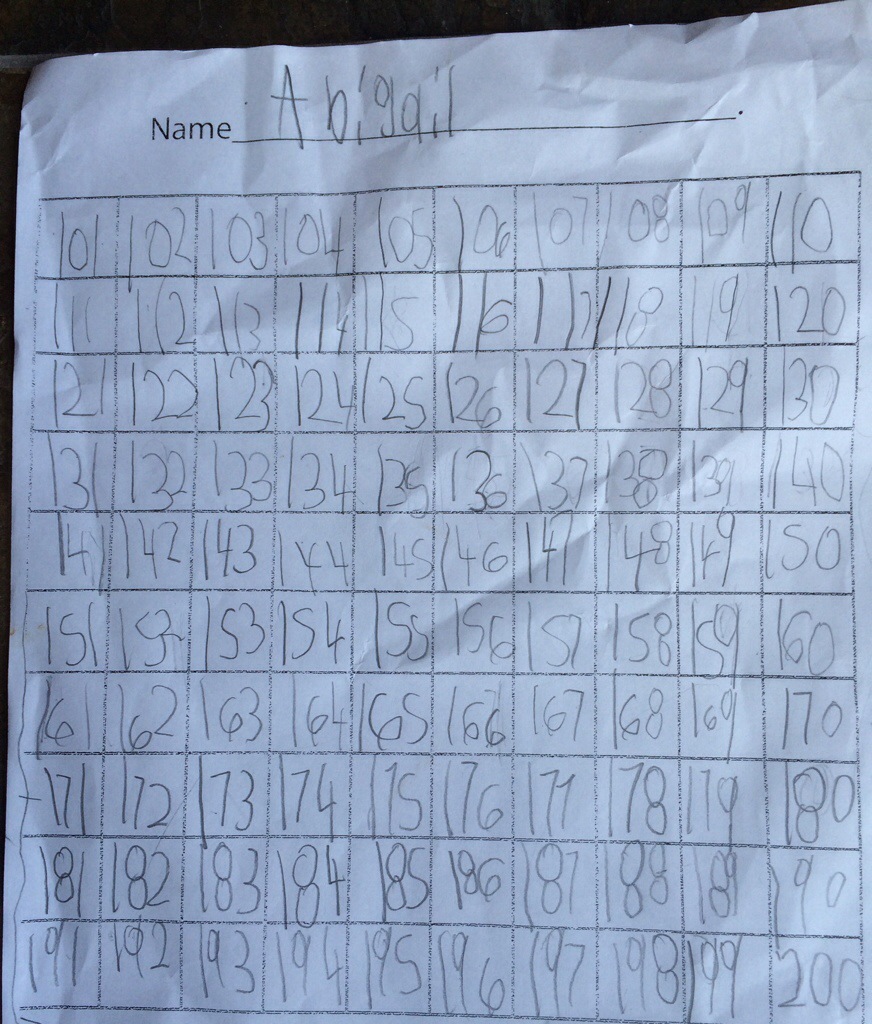 Name Abigail
101 102 103 104 105 106 107 108 109 110
111 112 113 114 115 116 117 118 119 120
121 122 123 124 125 126 127 128 129 130
131 132 133 134 135 136 137 138 139 140
141 142 143 144 145 146 147 148 149 150
151 152 153 154 155 156 157 158 159 160
16 162 163 164 165 166 167 168 169 170
171 172 173 174 175 176 177 178 179 180
181 182 183 184 185 186 187 188 189 190
191 192 193 194 195 196 197 198 199 200